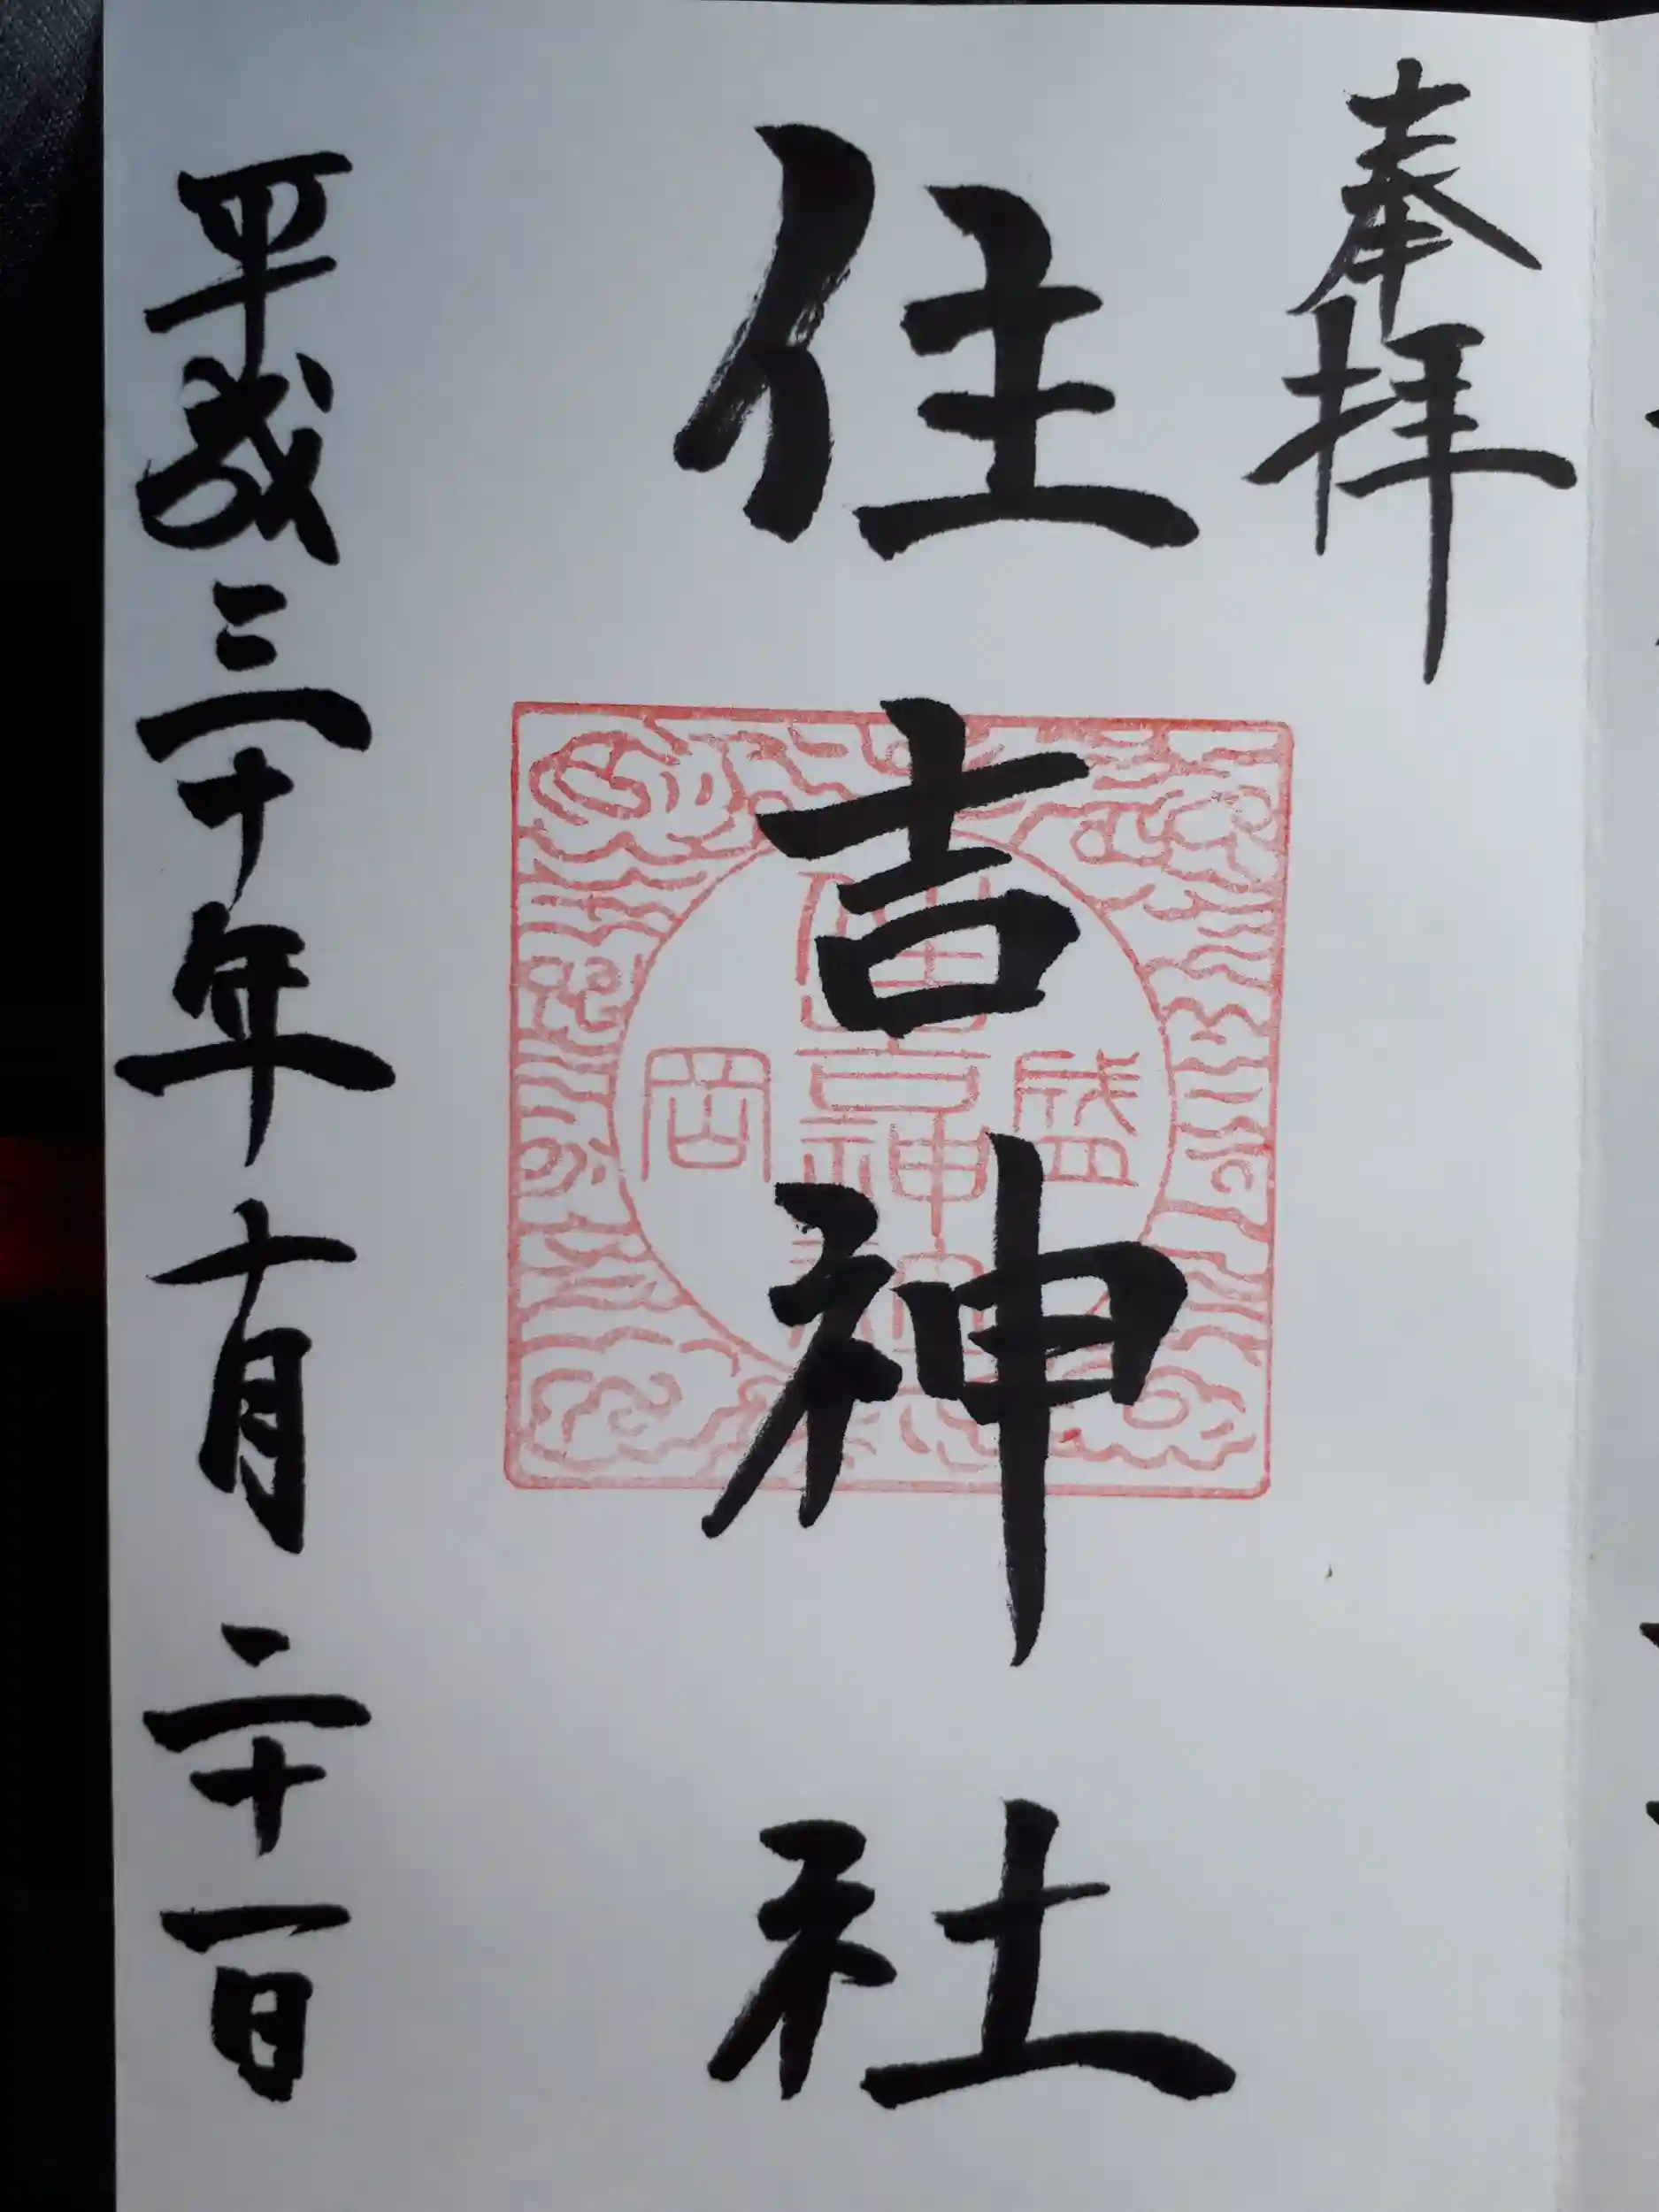 奉拝
住吉神社
盛岡
住吉神社
平成三十年十月二十一日